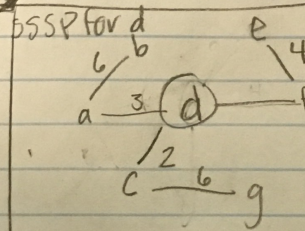 SSSP for d
b e
6 4
a 3 d
2
C 6 g